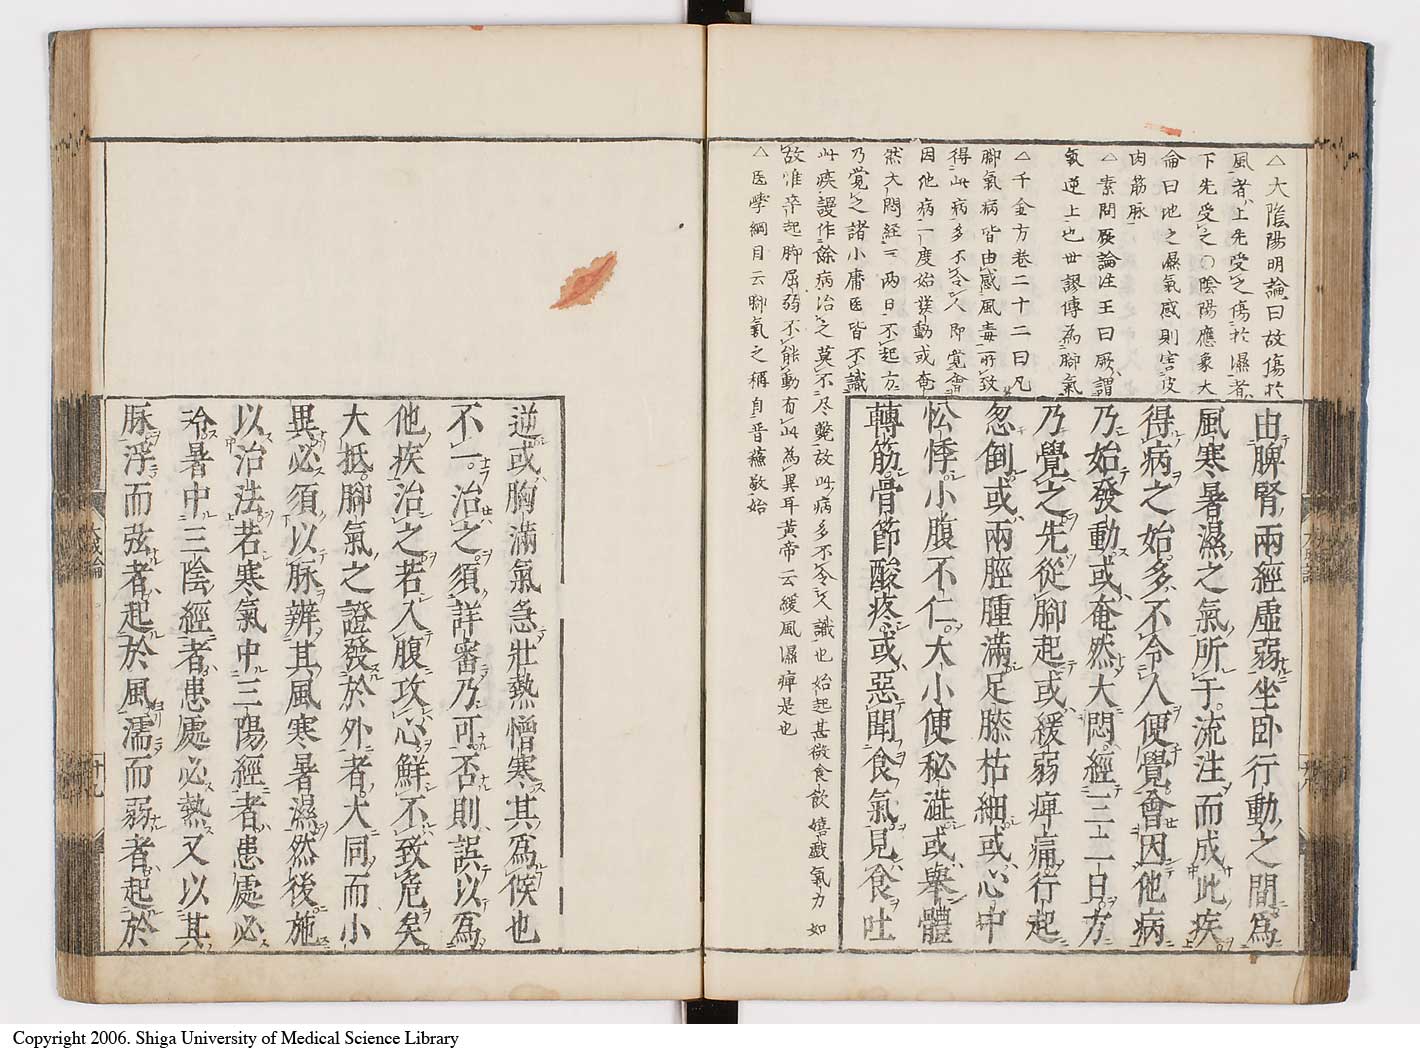 △大隂陽明論曰故傷於
風者上先受之傷於濕者
下先受之○隂陽應象大
侖曰地之濕氣感則害皮
肉筋脉
△素問厥論注王曰厥謂
氣逆上也世謬傳為脚氣
△千金方巻二十二曰凡
脚氣病皆由感風毒所致
得此病多不令人即覚會
因他病一度始発動或奄
然大悶経三両日不起方
乃覚之諸小庸医皆不識
此疾謾作餘病治之莫不尽斃故此病多不令人識也始起甚微食飲嬉戯氣力如
故惟卒起脚屈弱不能動有此為異耳黄帝云緩風濕痺是也
△医學綱目云脚氣之稱自晋蘓敬始
由脾腎兩經虛弱坐卧行動之間爲
風寒暑濕之氣所干流注而成此疾
得病之始多不令人便覺會因他病
乃始發動或奄然大悶經三二日方
乃覺之先從脚起或緩弱痺痛行起
忽倒或兩脛腫滿足膝枯細或心中
忪悸小腹不仁大小便秘澁或舉體
轉筋骨節酸疼或惡聞食氣見食吐
逆或胸滿氣急壯熱憎寒其爲候也
不一治之須詳審乃可否則誤以爲
他疾治之若入腹攻心鮮不致危矣
大抵脚氣之證發於外者大同而小
異必須以脉辨其風寒暑濕然後施
以治法若寒氣中三陽經者患處必
冷暑中三陰經者患處必熱又以其
脉浮而弦者起於風濡而弱者起於
大成論
廿九
Copyright 2006. Shiga University of Medical Science Library